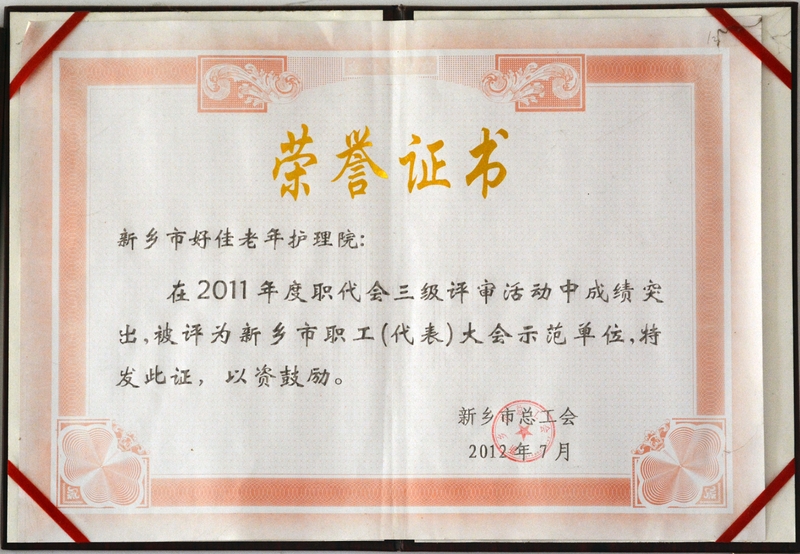 荣誉证书
新乡市好佳老年护理院:
在2011年度职代会三级评审活动中成绩突
出,被评为新乡市职工(代表)大会示范单位,特
发此证，以资鼓励。
新乡市总工会
2012年7月